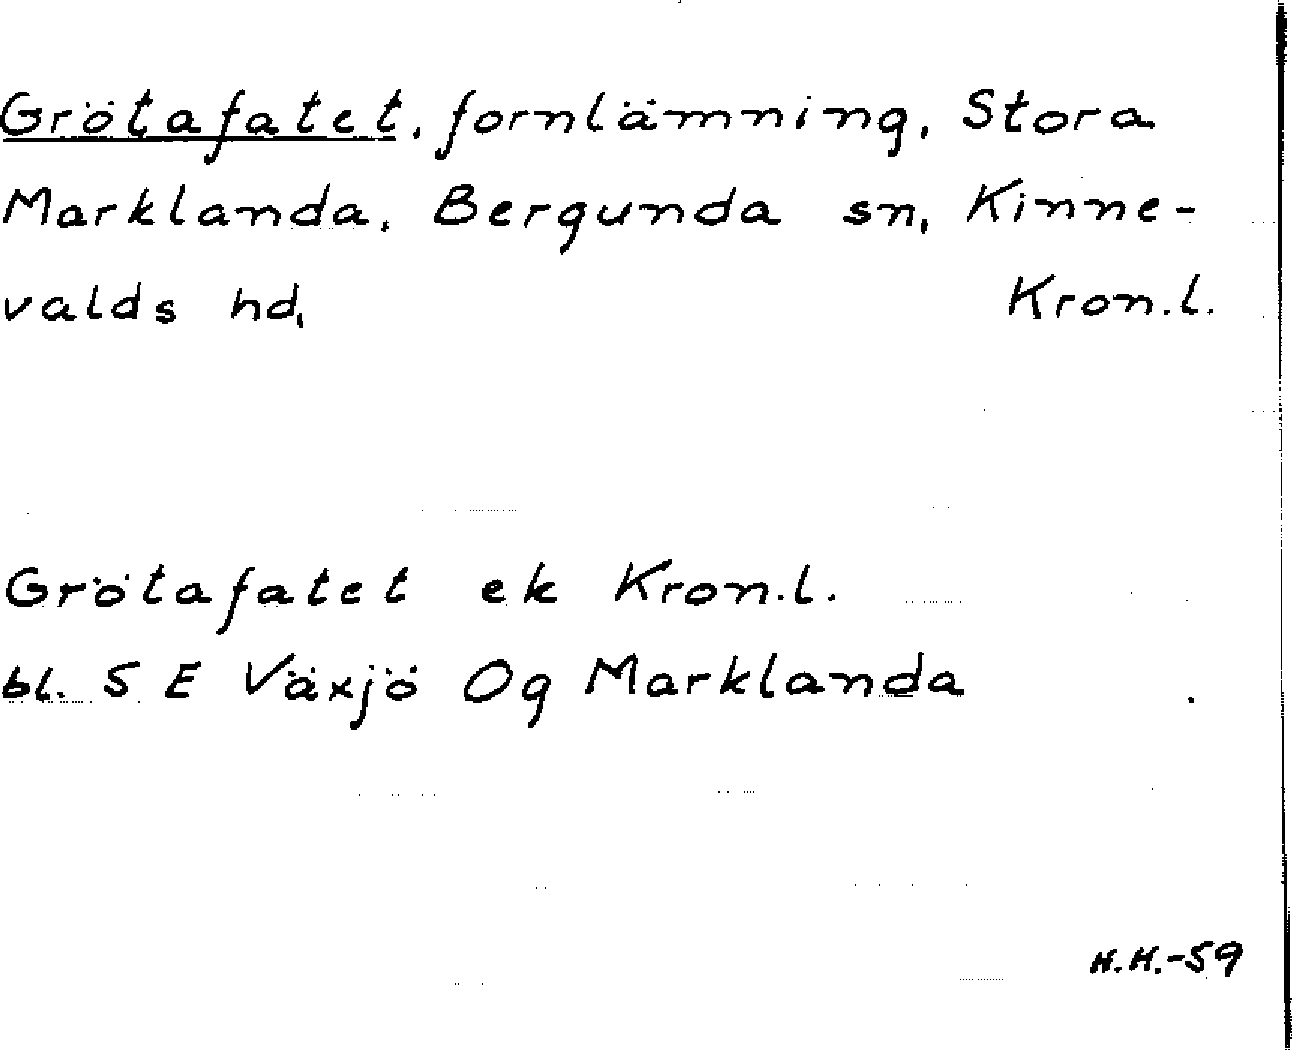 Grötafatet, fornlämning, Stora
Marklanda, Bergunda sn, Kinne-
valds hd, Kron.l.
Grötafatet ek Kron.l.
bl. 5 E Växjö Og Marklanda
H.H.-59